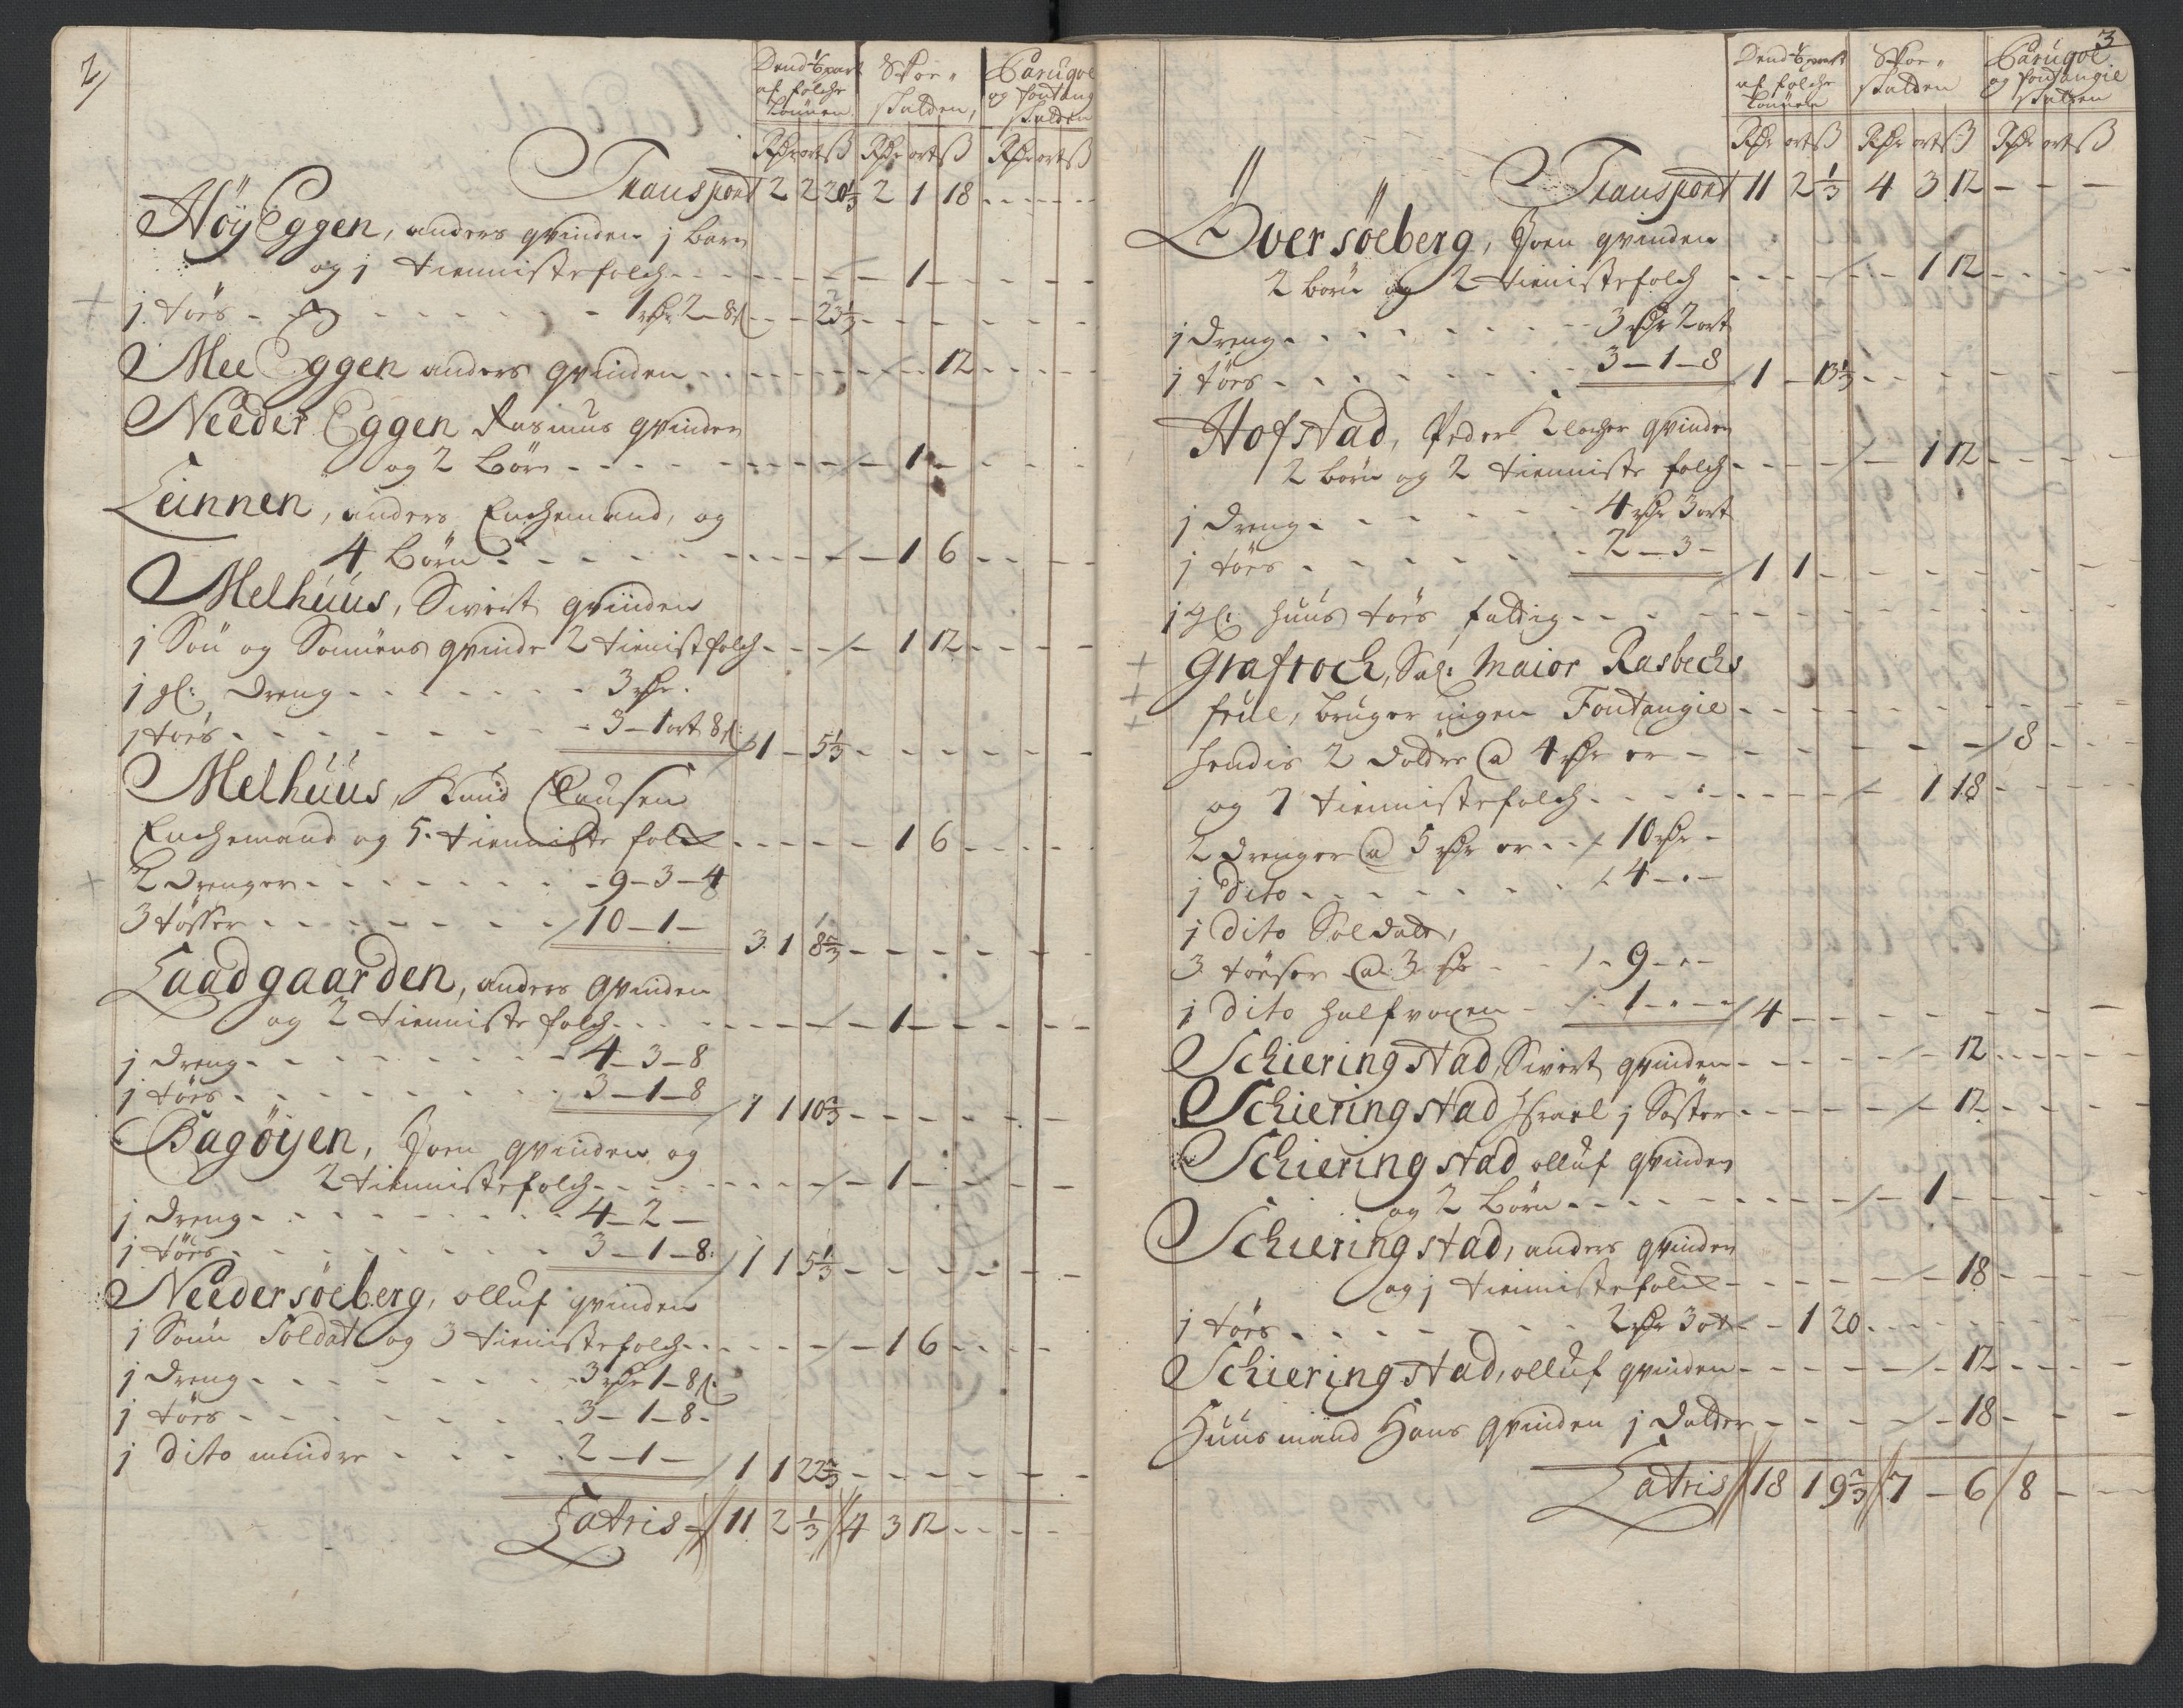 2/
Dend 1/6 part af folche Lönnen | Skoe- skatden, | Caruqve og fontang skatden
Rdr ort ß | Rdr ort ß | Rdr ort ß
Transport 2 2 20 1/3 2 1 18 - - -
HöyEggen, anders qvinden j barn
og j tiennistefolch - - - 1 - - - -
j. törs - - - 1 rdr 2 - 8 ß - - 23 1/3 - - - -
Mee Eggen anders qvinden - - - 12 - - -
Needer Eggen Rasmus qvinden
og 2 börn - - - 1 - - - -
Leinnen, anders Enchemand, og
4 börn - - - 1 6 - - -
Melhuus, Sivert qvinden
j Sön og Sonnens qvinde 2 tienistfolch - - - 1 12 - - -
j gl: dreng - - - 3 rdr.
j törs - - - 3 - 1 ort 8 ß / 1 - 5 1/3 - - - -
Melhuus, Knud Clausen
Enchemand og 5. tienniste folch - - - 1 6 - - -
2 drenger - - - 9 - 3 - 4
3 tösser - - - / 10 - 1 - 3 1 8 2/3 - - - -
Laadgaarden, anders qvinden
og 2 tienniste folch - - - 1 - - - -
j dreng - - - 4 - 3 - 8
j törs - - - 3 - 1 - 8 / 1 1 10 2/3 - - - -
Bagöyen, Joen qvinden og
2 tiennistefolch - - - 1 - - - -
j dreng - - - 4 - 2 -
j törs - - - 3 - 1 - 8. / 1 1 5 1/3 - - - -
Needersöeberg, olluf qvinden
j Sönn Soldat og 3 tienistefolch - - - 1 6 - - -
j dreng - - - 3 rdr 1 - 8 ß
j törs - - - 3 - 1 - 8.
j dito mindre - - - 2 - 1 - / 1 1 22 2/3 - - - -
Latris // 11 2 1/3 // 4 3 12 - - -
3
Dend 1/6 part af folche Lönnen | Skoe- skatden | Caruqve og fontangie skatten
Rdr ort ß | Rdr ort ß | Rdr ort ß
Transport 11 2 1/3 4 3 12 - - -
Över söeberg, Joen qvinden
2 börn og 2 tienistefolch - - - 1 12 - - -
j dreng - - - 3 rdr 2 ort
j törs - - - 3 - 1 - 8 / 1 - 13 1/3 - - - -
Hofstad, Peder Klocher qvinden
2 börn og 2 tienniste folch - - - 1 12 - - -
j dreng - - - 4 rdr 3 ort
j törs - - - 2 - 3 - / 1 1 - - - - -
j gl: huus törs fattig - - -
Grafroch, Sal: Maior Rasbechs
frue, bruger ingen Fontangie - - -
hendis 2 döttre @ 4 rdr er - - - / 8 - -
og 7 tiennistefolch - - - 1 18 - - -
2 drenger @ 5 rdr er - - / 10 rdr -
j dito - - - / 4 - . -
j dito Soldat,
3 töeser @ 3 rdr - - / - 9 - . -
j dito halfvoxen - / - 1 - . - / 4 - - - - -
Schieringstad, Sivert qvinden - - - 12 - - -
Schieringstad Israel j Söster - - - 12 - - -
Schieringstad olluf qvinden
og 2 börn - - - 1 - - - -
Schieringstad, anders qvinden
og j tienistefolch - - - 18 - - -
j törs - - - 2 rdr 3 ort - - 1 20 - - - -
Schieringstad, olluf qvinden - - - 12 - - -
Huusmand Hans qvinden j datter - - - 18 - - -
Latris // 18 1 9 2/3 // 7 - 6 / 8 - -